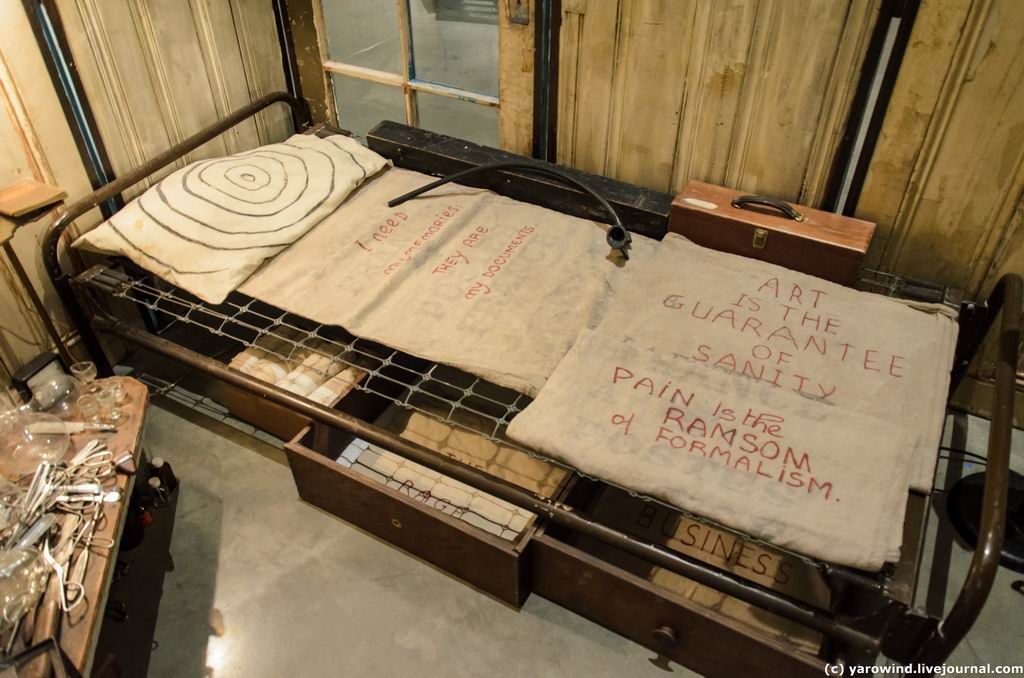 I need
my memories.
THEY ARE
my DOCUMENTS.
ART
IS THE
GUARANTEE
OF
SANITY
PAIN IS the
RAMSOM
of FORMALISM.
THE
RAGE
BUSINESS
(c) yarowind.livejournal.com